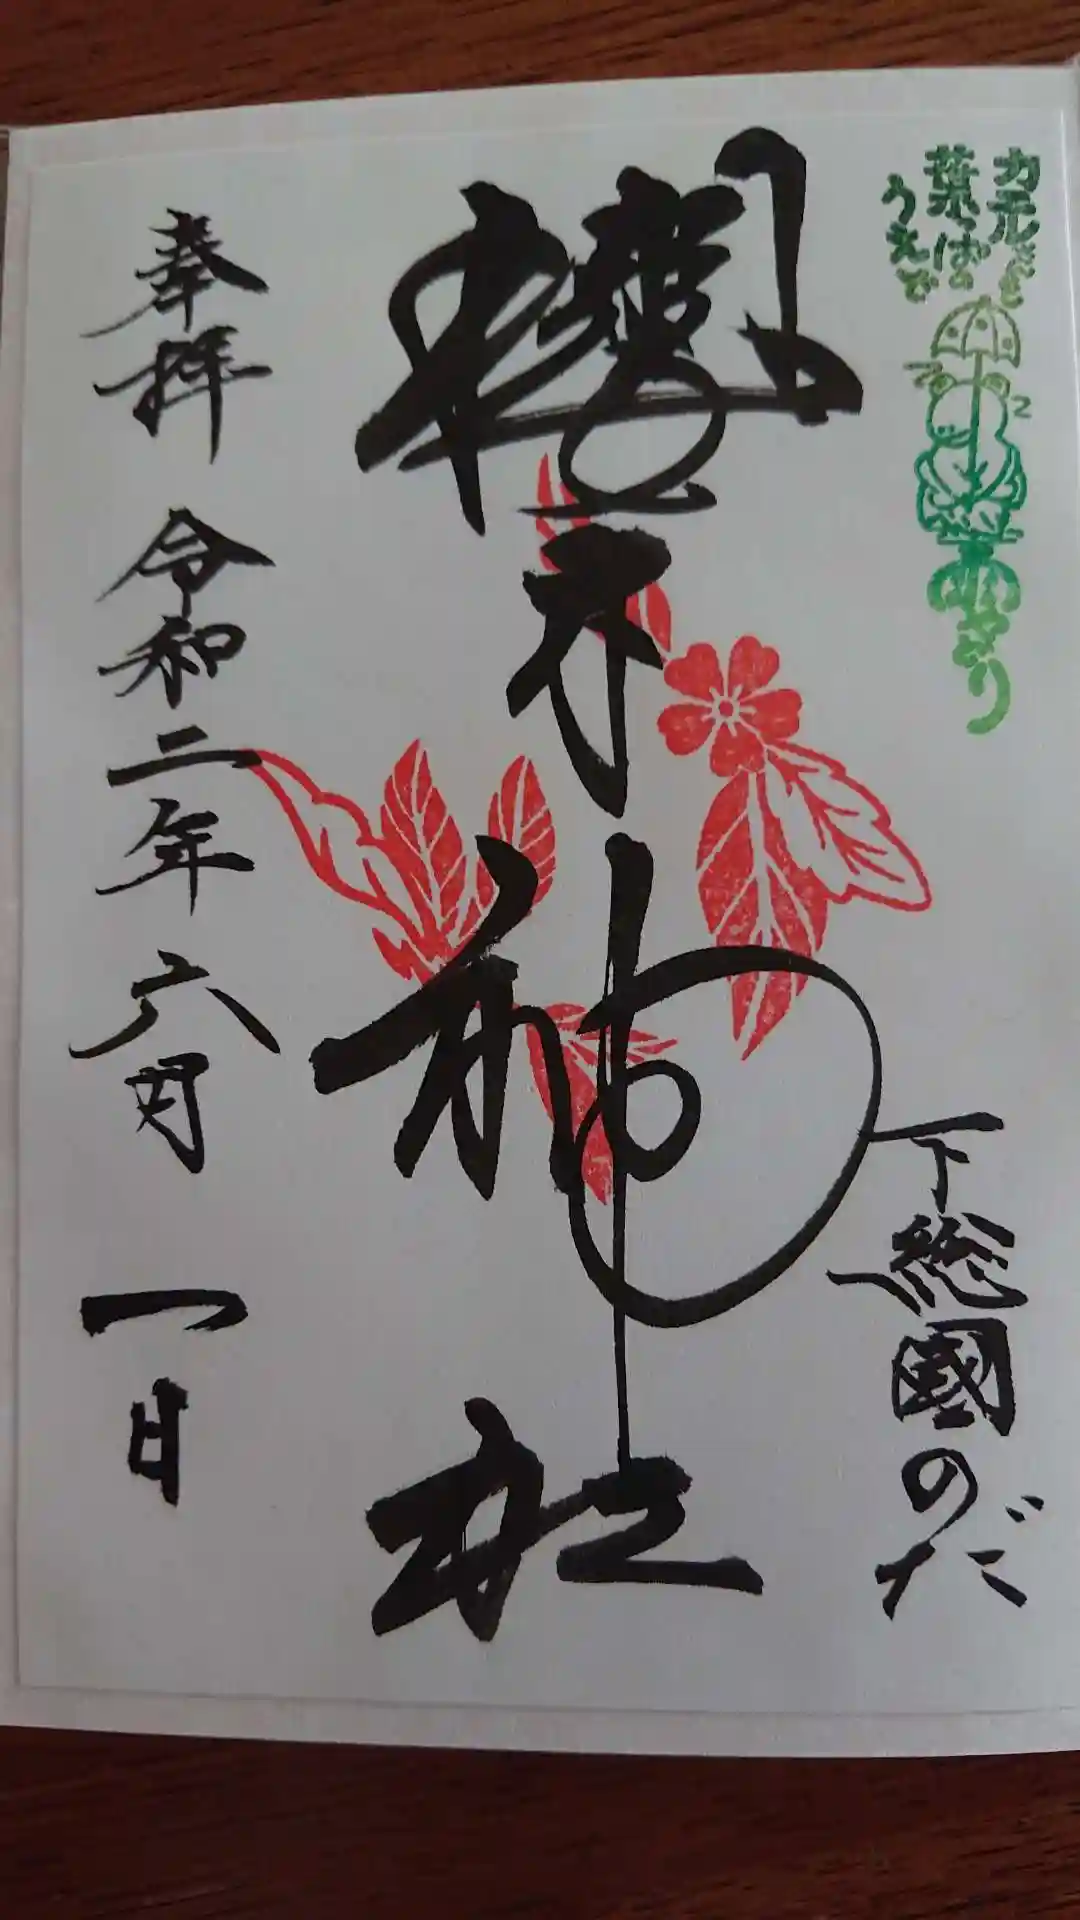 カエルさん
葉っぱの
うえで
雨やどり
下総國のだ
櫻木神社
奉拝 令和二年 六月 一日